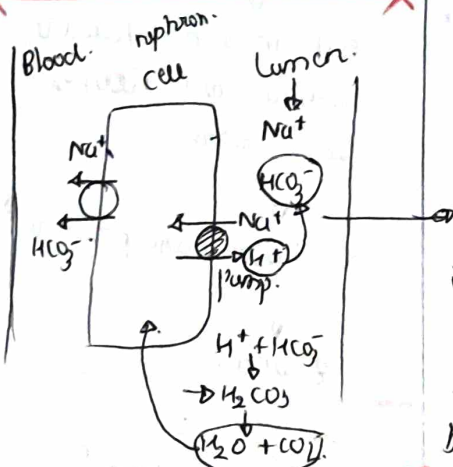 Blood.
nephron.
cell
Lumen.
Na⁺
Na⁺
HCO₃⁻
HCO₃⁻.
Na⁺
H⁺
pump.
H⁺ + HCO₃⁻
→ H₂CO₃
H₂O + CO₂